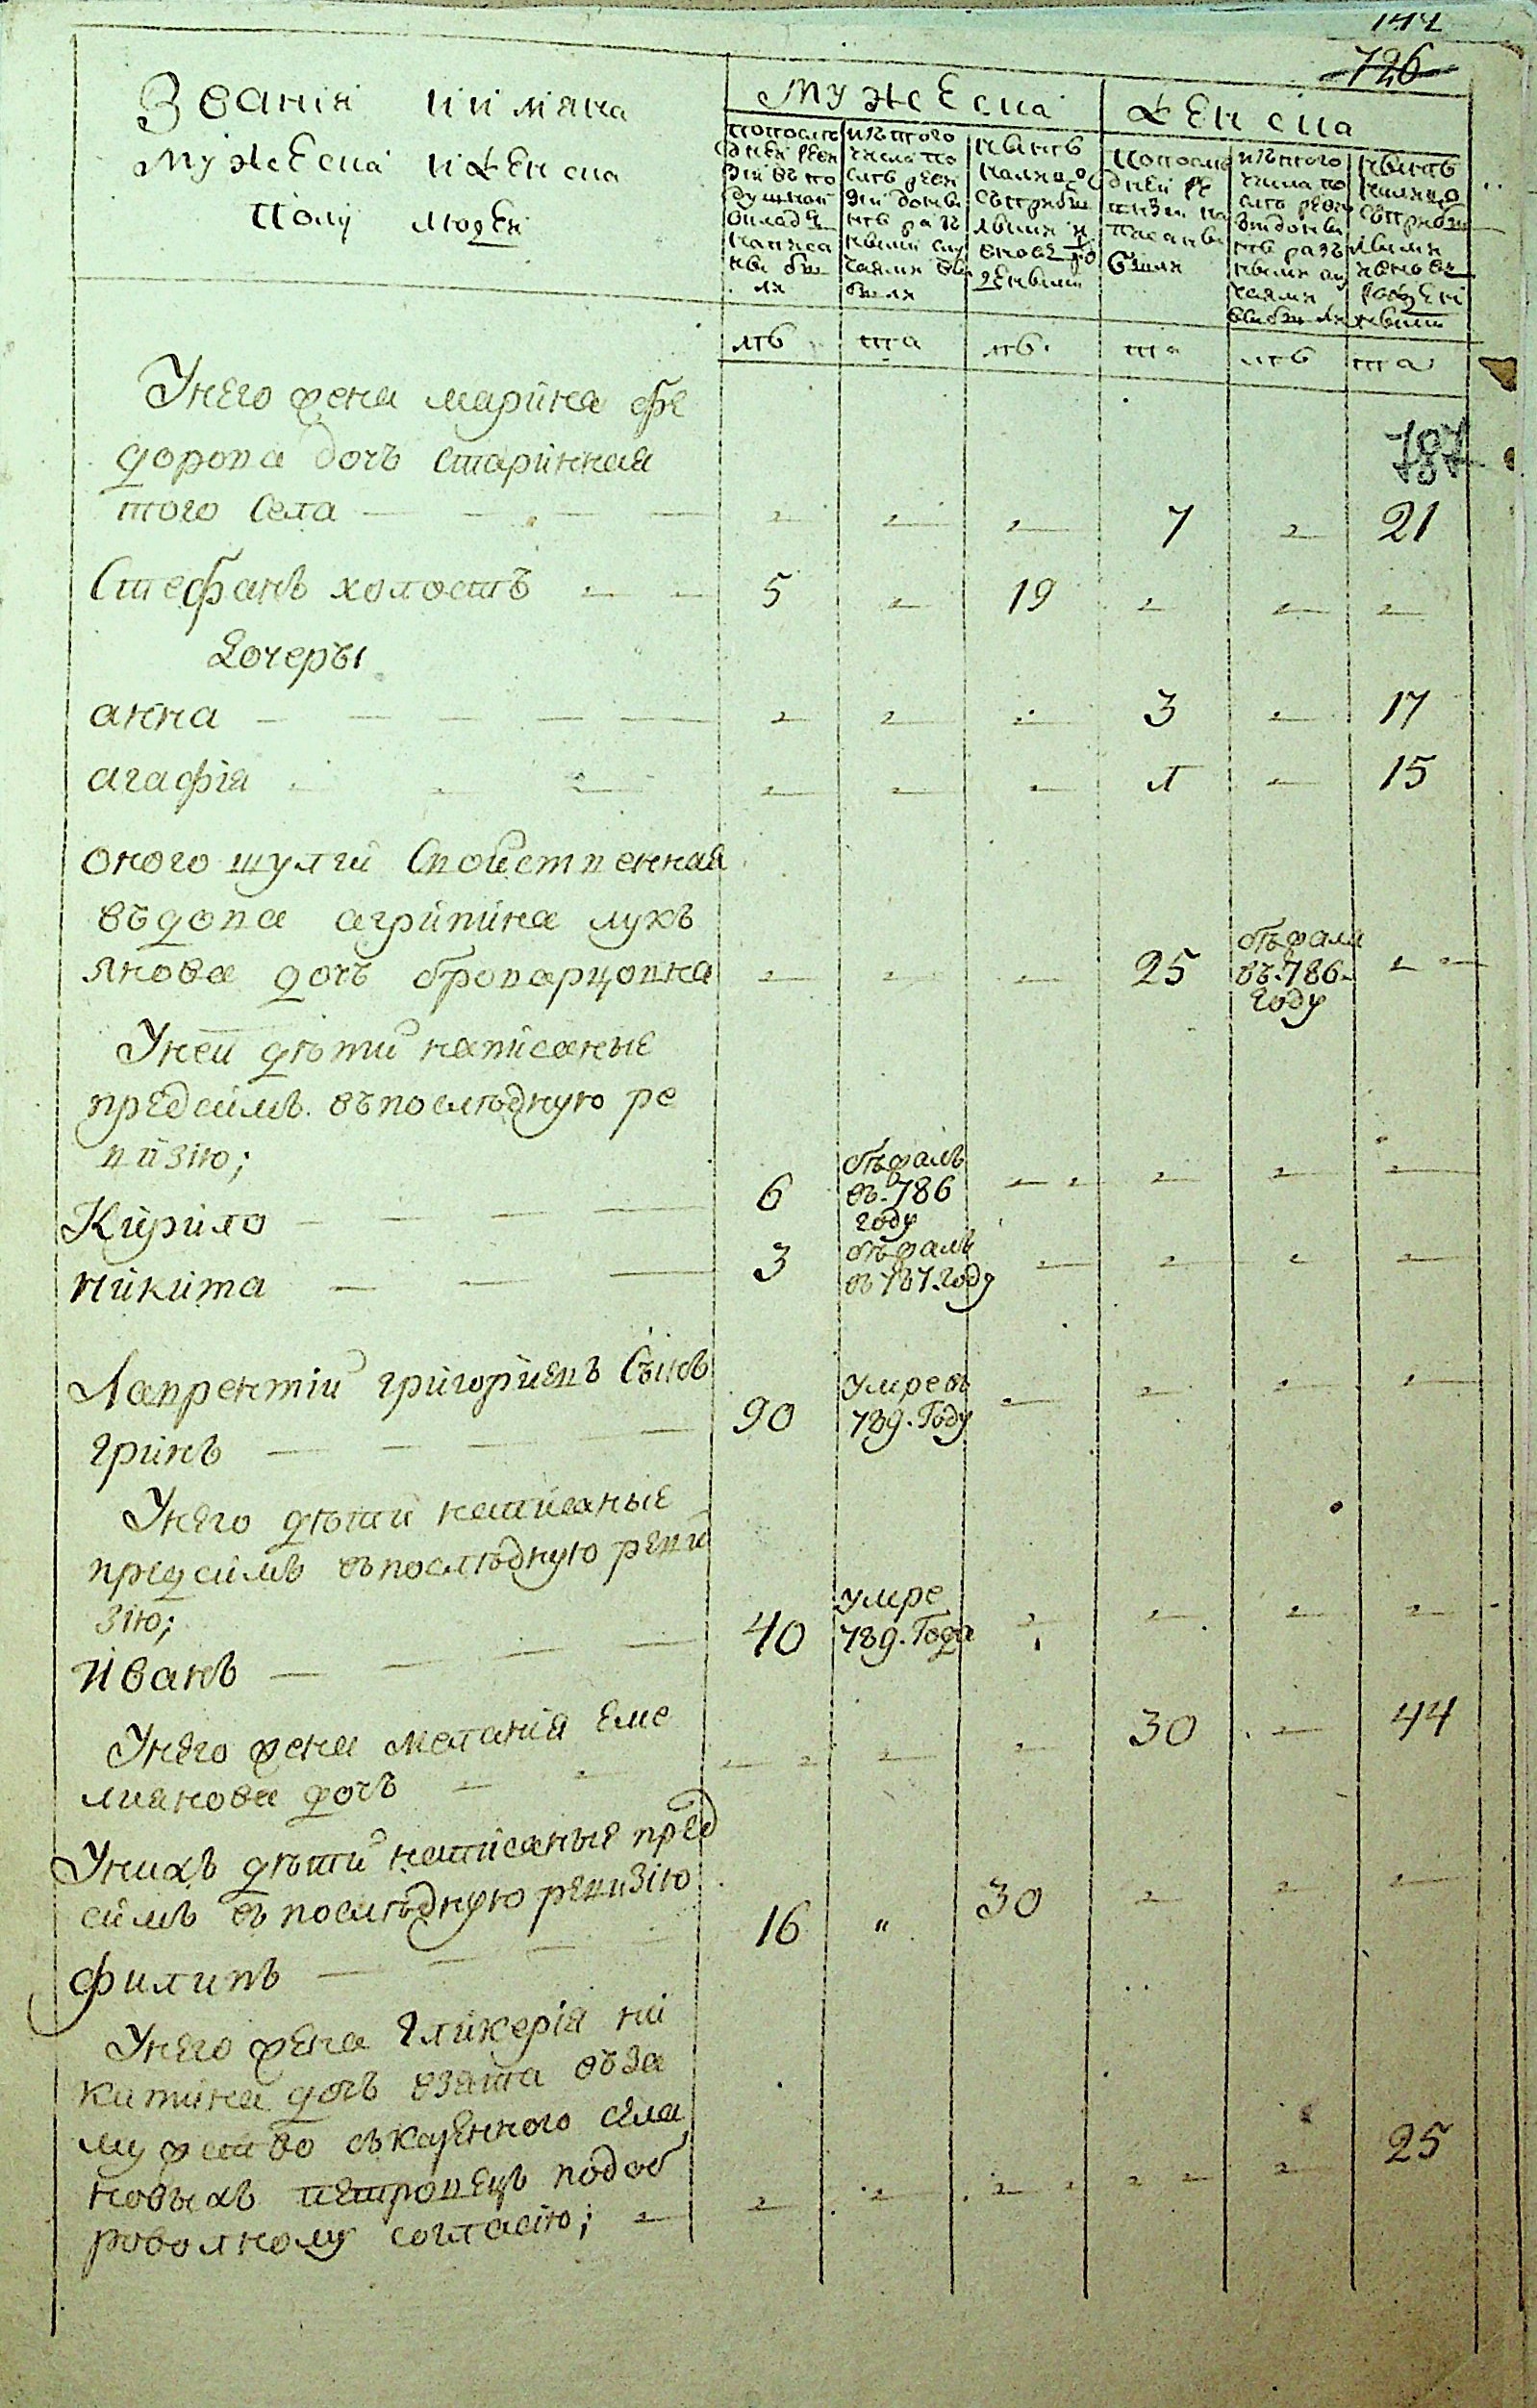 144
726
Званія и имяна
мужеска и женска
полу людей
Мужеска
Женска
попослѣ
дней реви
зіи въ по
душной
оклад
написа
ны бы
ли
изъ того
числа по
слѣ реви
зіи
разъ
ными слу
чаями
были
нынѣ
налицо
съприбы
лыми и
внов
денными
попослѣ
дней ре
визіи на
писаны
были
изъ того
числа по
слѣ реви
зіи
разъ
ными слу
чаями
нынѣ
налицо
съприбы
лыми
и внов
рожден
ными
лѣ
та
лѣ
та
лѣ
та
787
Унего жена марина фе
дорова дочь старинная
того села 7 21
Стефанъ холостъ 5 19
Дочеры
анна 3 17
агафія 1 15
оного шулги свойственная
въдова агрипина лукъ
янова дочъ 25 бѣжала
въ 786
году
Уней дѣти написаные
предсимъ въпослѣдную ре
визію;
Кирило 6 бѣжалъ
въ 786
году
никита 3 бѣжалъ
въ 787 году
Лаврентій григориевъ Сынъ
гринь 90 умре въ
789. Году
Унего дѣти написаные
предсимъ въпослѣдную реви
зію;
иванъ 40 умре
789. Года
Унего жена меланія Еме
лиянова дочъ 30 44
Унихъ дѣти написаные пред
симъ въпослѣдную ревизію
филипъ 16 " 30
Унего жена гликерія ни
китина дочь взята въза
мужство съказенного села
новыхъ петровецъ подоб
роволному согласію; 25